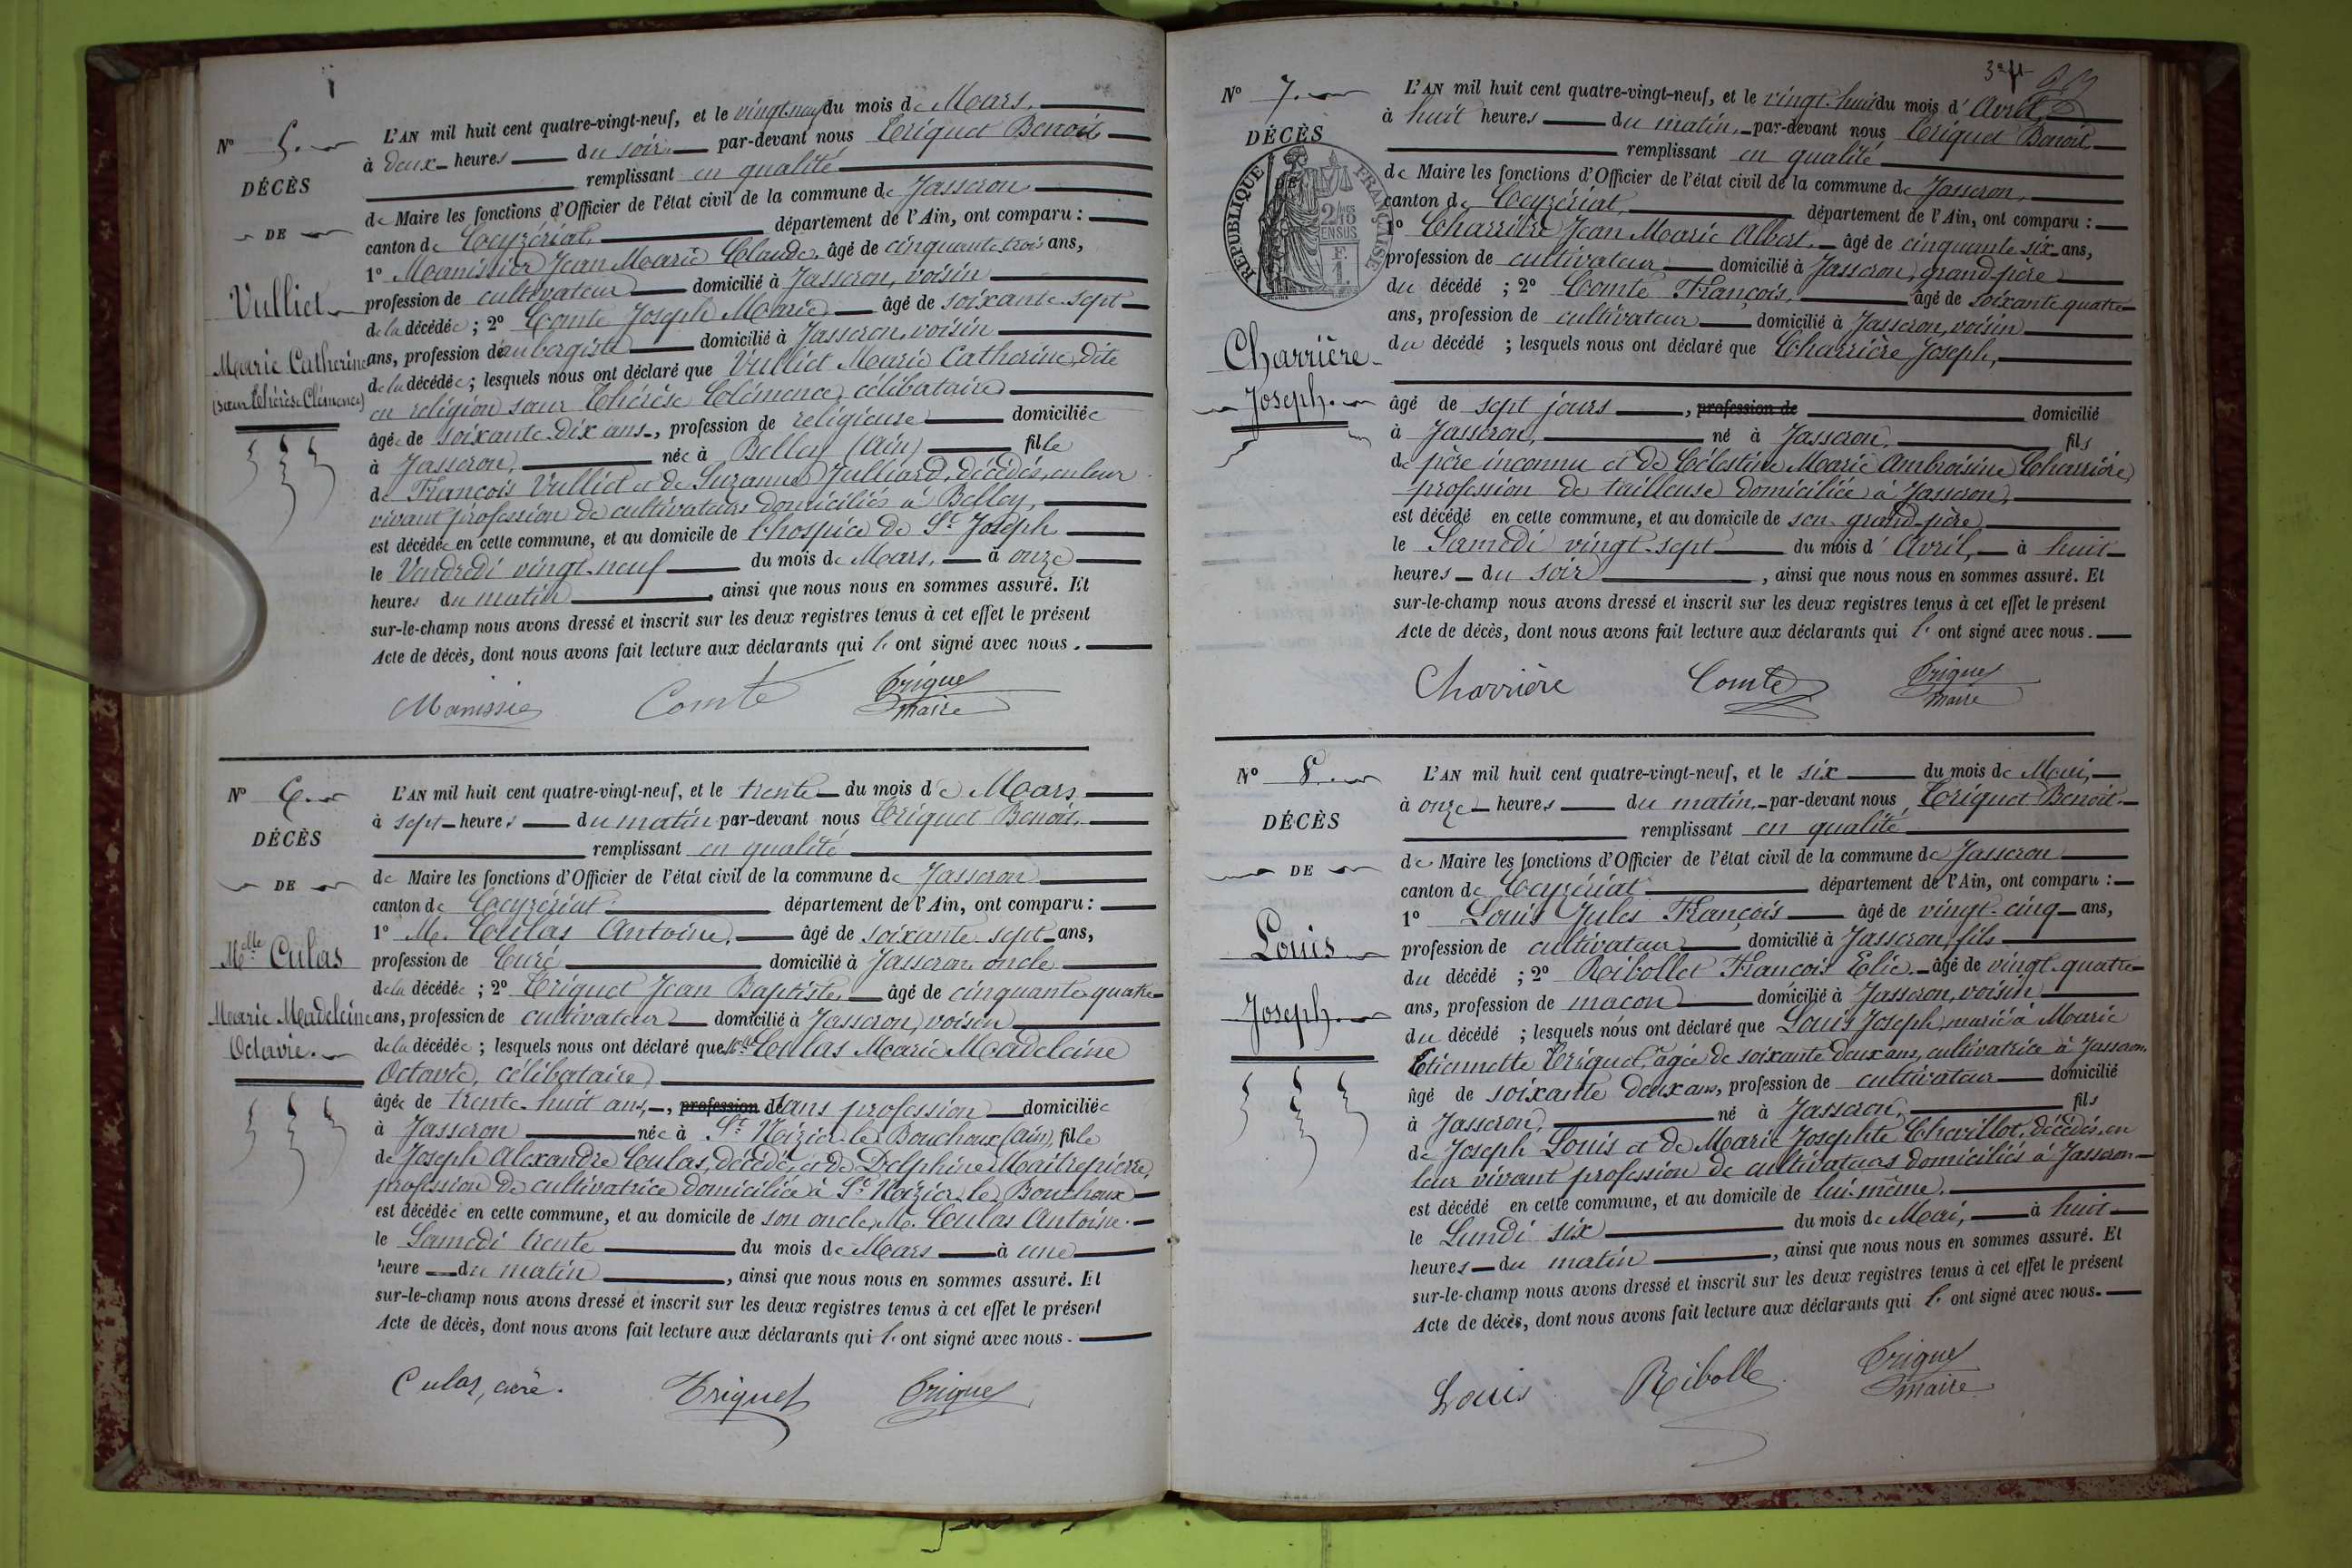 N° 5.
DÉCÈS
DE
Vulliet
Marie Catherine
(sœur Thérèse Clémence)
L'AN mil huit cent quatre-vingt-neuf, et le vingt-neuf du mois de Mars,
à deux heures du soir, par-devant nous Triquet Benoit,
remplissant en qualité
de Maire les fonctions d'Officier de l'état civil de la commune de Jasseron
canton de Ceyzériat, département de l'Ain, ont comparu :
1° Manissier Jean Marie Claude, âgé de cinquante trois ans,
profession de cultivateur domicilié à Jasseron, voisin
de la décédée ; 2° Comte Joseph Marie âgé de soixante-sept
ans, profession de aubergiste domicilié à Jasseron, voisin
de la décédée ; lesquels nous ont déclaré que Vulliet Marie Catherine, dite
en religion sœur Thérèse Clémence, célibataire
âgée de soixante-dix ans, profession de religieuse domiciliée
à Jasseron, née à Belley (Ain) fille
de François Vulliet et de Suzanne Julliard, décédés, en leur
vivant profession de cultivateurs domiciliés à Belley,
est décédée en cette commune, et au domicile de l'hospice de St Joseph
le Vendredi vingt-neuf du mois de Mars, à onze
heures du matin, ainsi que nous nous en sommes assuré. Et
sur-le-champ nous avons dressé et inscrit sur les deux registres tenus à cet effet le présent
Acte de décès, dont nous avons fait lecture aux déclarants qui l' ont signé avec nous.
Manissier Comte Triquet
maire
N° 6.
DÉCÈS
DE
Melle Culas
Marie Madeleine
Octavie.
L'AN mil huit cent quatre-vingt-neuf, et le trente du mois de Mars
à sept heures du matin par-devant nous Triquet Benoit,
remplissant en qualité
de Maire les fonctions d'Officier de l'état civil de la commune de Jasseron
canton de Ceyzériat département de l'Ain, ont comparu :
1° M. Culas Antoine, âgé de soixante-sept ans,
profession de Curé domicilié à Jasseron, oncle
de la décédée ; 2° Triquet Jean Baptiste, âgé de cinquante-quatre
ans, profession de cultivateur domicilié à Jasseron, voisin
de la décédée ; lesquels nous ont déclaré que Melle Culas Marie Madeleine
Octavie, célibataire,
âgée de trente-huit ans, profession de sans profession domiciliée
à Jasseron née à St Nizier-le-Bouchoux (Ain), fille
de Joseph Alexandre Culas, décédé, et de Delphine Maitrepierre,
profession de cultivatrice domiciliée à St Nizier-le-Bouchoux
est décédée en cette commune, et au domicile de son oncle, M. Culas Antoine.
le Samedi trente du mois de Mars à une
heure du matin, ainsi que nous nous en sommes assuré. Et
sur-le-champ nous avons dressé et inscrit sur les deux registres tenus à cet effet le présent
Acte de décès, dont nous avons fait lecture aux déclarants qui l' ont signé avec nous.
Culas, curé. Triquet Triquet
N° 7.
DÉCÈS
DE
RÉPUBLIQUE FRANÇAISE
2/10
EN SUS
F.
1.
Charrière
Joseph.
L'AN mil huit cent quatre-vingt-neuf, et le vingt-huit du mois d'Avril,
à huit heures du matin, par-devant nous Triquet Benoit
remplissant en qualité
de Maire les fonctions d'Officier de l'état civil de la commune de Jasseron,
canton de Ceyzériat, département de l'Ain, ont comparu :
1° Charrière Jean Marie Albert, âgé de cinquante-six ans,
profession de cultivateur domicilié à Jasseron, grand-père
du décédé ; 2° Comte François, âgé de soixante quatre
ans, profession de cultivateur domicilié à Jasseron, voisin
du décédé ; lesquels nous ont déclaré que Charrière Joseph,
âgé de sept jours, profession de domicilié
à Jasseron, né à Jasseron, fils
de père inconnu et de Célestine Marie Ambroisine Charrière,
profession de tailleuse domiciliée à Jasseron,
est décédé en cette commune, et au domicile de son grand-père,
le Samedi vingt-sept du mois d'Avril, à huit
heures du soir, ainsi que nous nous en sommes assuré. Et
sur-le-champ nous avons dressé et inscrit sur les deux registres tenus à cet effet le présent
Acte de décès, dont nous avons fait lecture aux déclarants qui l' ont signé avec nous.
Charrière Comte Triquet
maire
N° 8.
DÉCÈS
DE
Louis
Joseph.
L'AN mil huit cent quatre-vingt-neuf, et le six du mois de Mai,
à onze heures du matin, par-devant nous Triquet Benoit
remplissant en qualité
de Maire les fonctions d'Officier de l'état civil de la commune de Jasseron
canton de Ceyzériat département de l'Ain, ont comparu :
1° Louis Jules François âgé de vingt-cinq ans,
profession de cultivateur domicilié à Jasseron, fils
du décédé ; 2° Ribollet François Elie, âgé de vingt-quatre
ans, profession de maçon domicilié à Jasseron, voisin
du décédé ; lesquels nous ont déclaré que Louis Joseph, marié à Marie
Etiennette Triquet, âgée de soixante deux ans, cultivatrice à Jasseron,
âgé de soixante deux ans, profession de cultivateur domicilié
à Jasseron, né à Jasseron, fils
de Joseph Louis et de Marie Josephte Chevillot, décédés, en
leur vivant profession de cultivateurs domiciliés à Jasseron
est décédé en cette commune, et au domicile de lui-même,
le Lundi six du mois de Mai, à huit
heures du matin, ainsi que nous nous en sommes assuré. Et
sur-le-champ nous avons dressé et inscrit sur les deux registres tenus à cet effet le présent
Acte de décès, dont nous avons fait lecture aux déclarants qui l' ont signé avec nous.
Louis Ribolle Triquet
maire